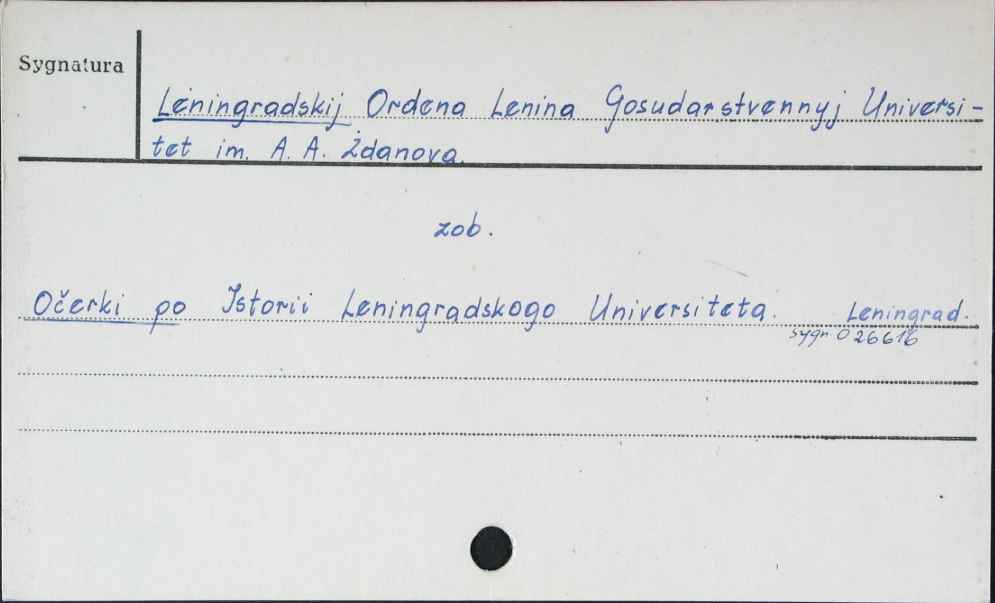 Sygnatura
Leningradskij Ordena Lenina Gosudarstvennyj Universi-
tet im. A. A. Ždanova.
zob.
Očerki po Istorii Leningradskogo Universiteta. Leningrad.
sygn O 26616